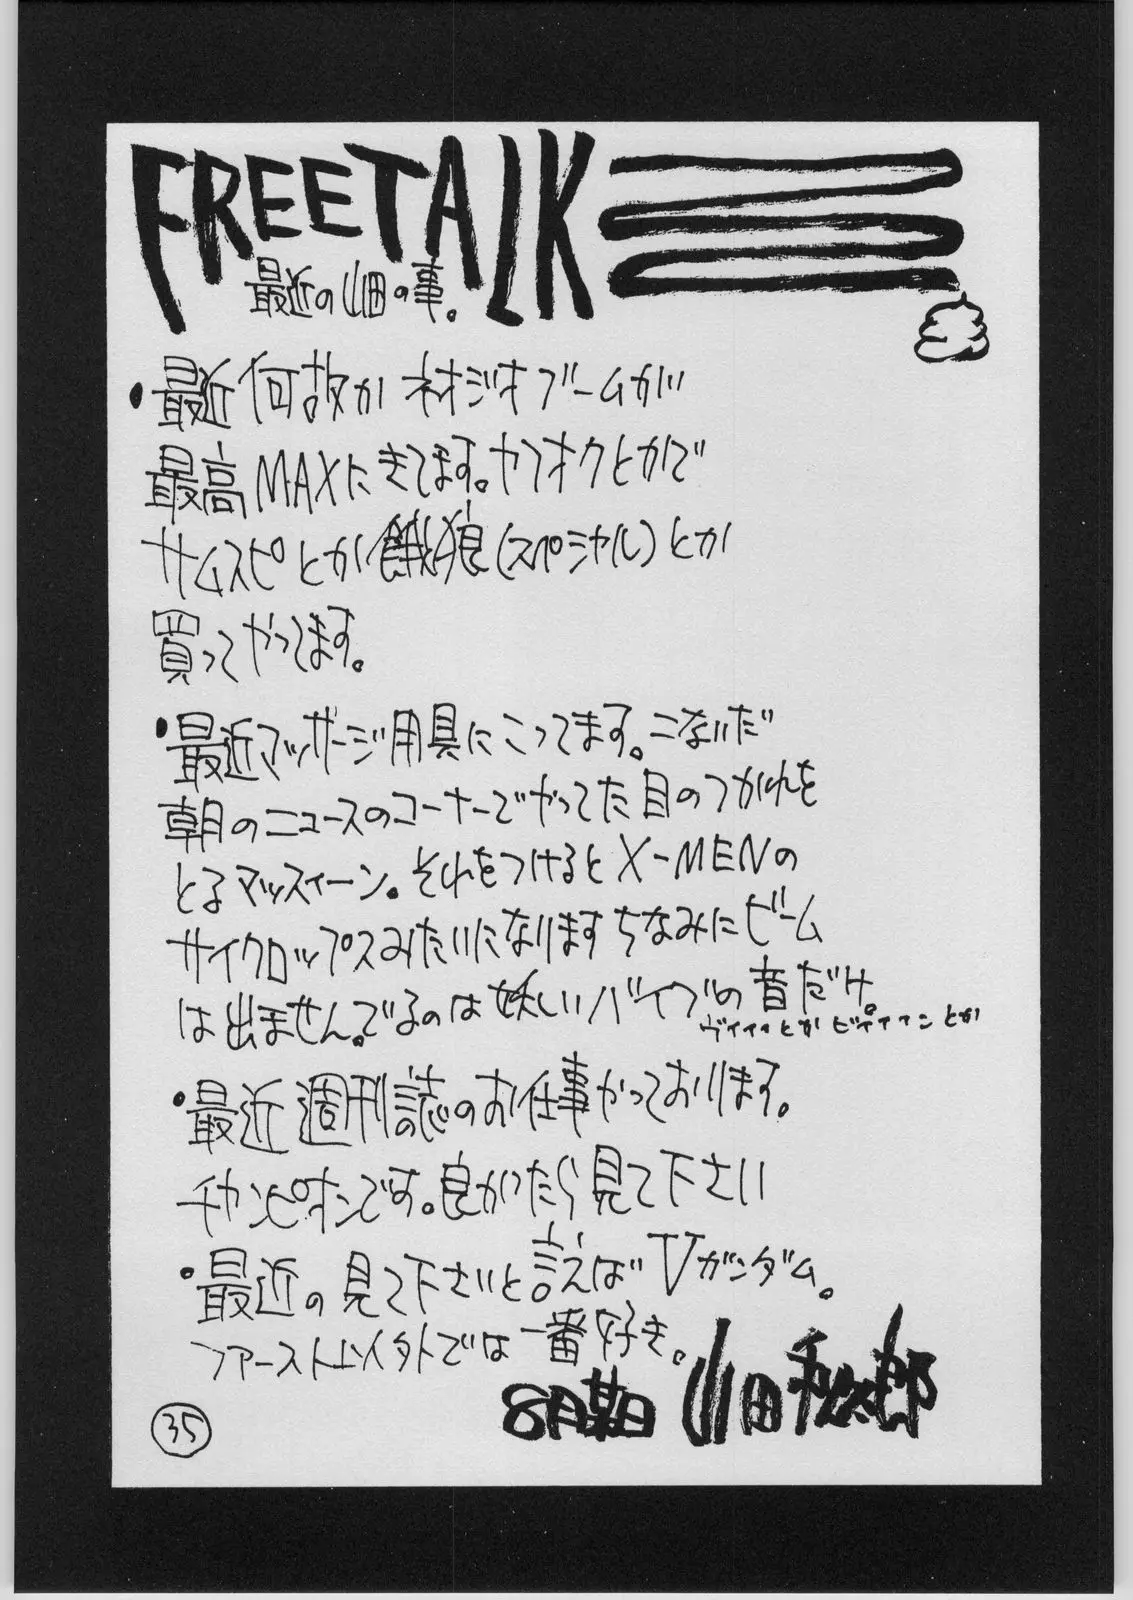 FREETALK
最近の山田の事。
・最近何故かネオジオブームが
最高MAXにきてます。ヤフオクとかで
サムスピとか餓狼(スペシャル)とか
買ってやってます。
・最近マッサージ用具にこってます。こないだ
朝のニュースのコーナーでやってた目のつかれを
とるマッスィーン。それをつけるとX-MENの
サイクロップスみたいになりますちなみにビーム
は出ません。でるのは妖しいバイブの音だけ。
ヴィィィとか ピティインとか
・最近週刊誌のお仕事やっております。
チャンピオンです。良かったら見て下さい
・最近の見て下さいと言えばVガンダム。
ファースト以外では一番好き。
8月期日 山田秀太郎
35